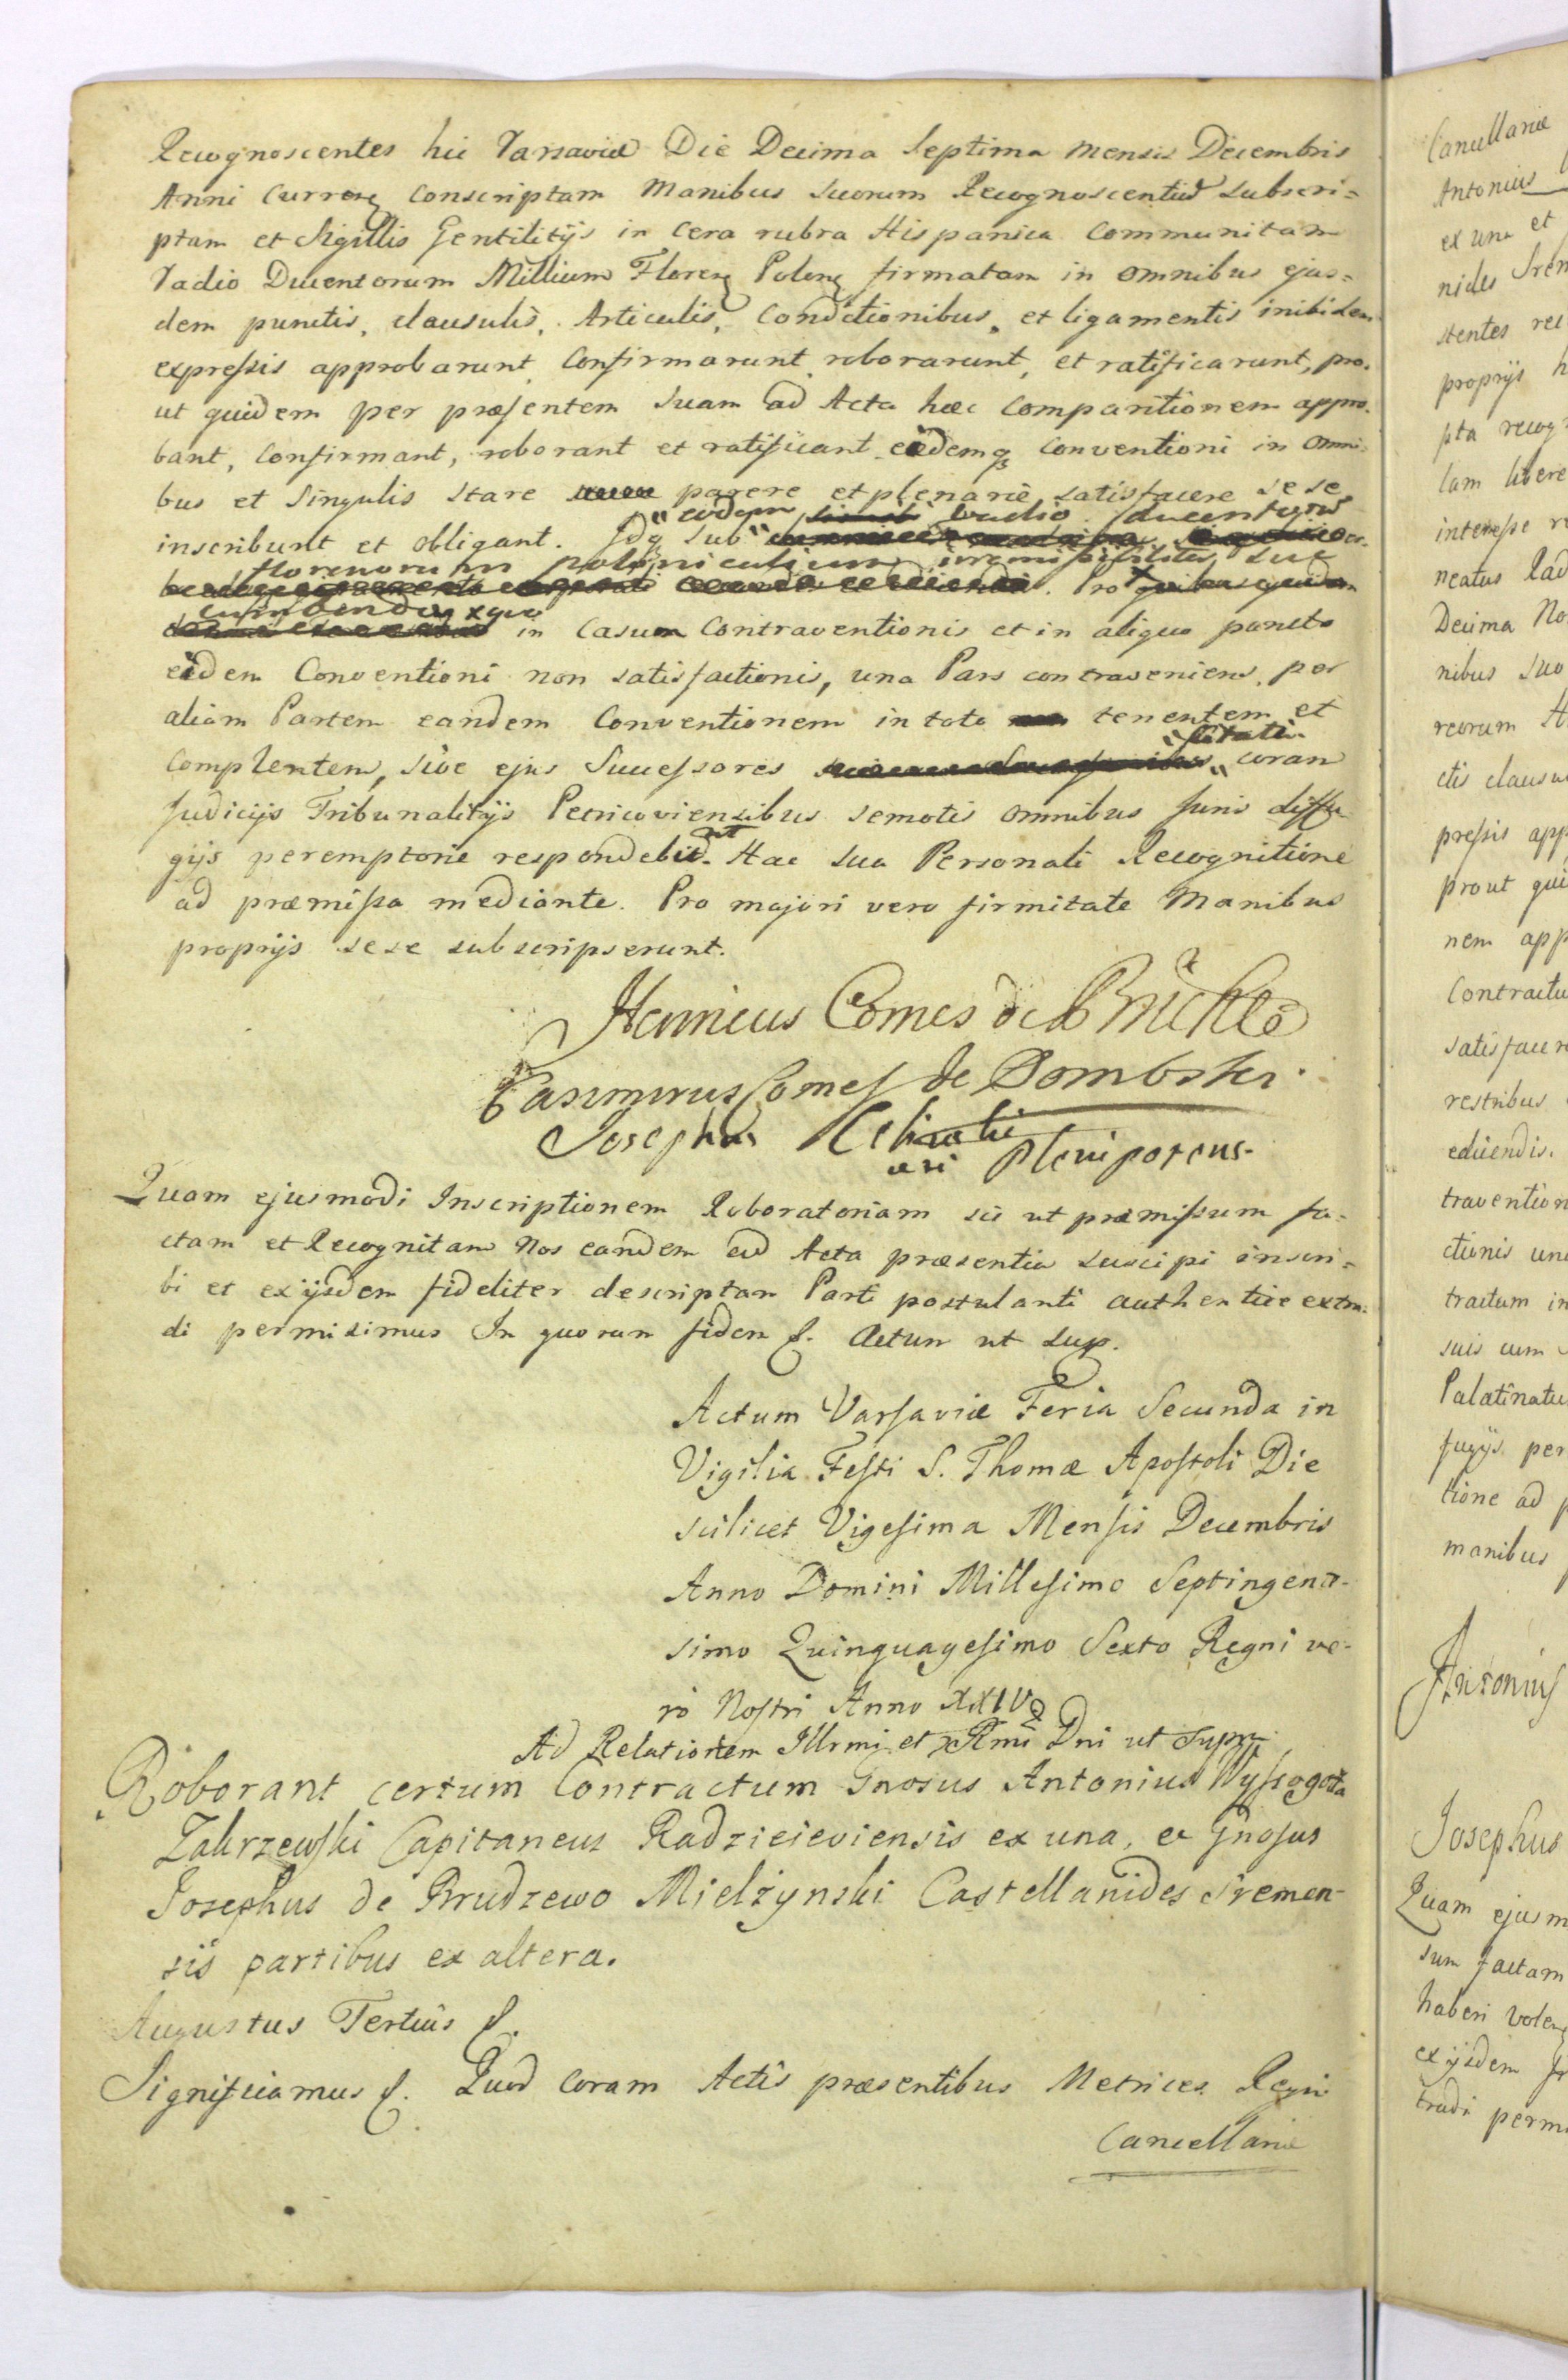 Recognoscentes hic Varsaviæ Die Decima Septima Mensis Decembris
Anni Curren conscriptam Manibus suorum Recognoscentiũ subscri=
ptam et Sigillis Gentilitÿs in Cera rubra Hispanica Communitam
Vadio Ducentorum Millium Floren Polon firmatam in omnibus ejus=
dem punctis, clausulis, Articulis, Conditionibus, et ligamentis inibidem
expressis approbarunt, Confirmarunt, roborarunt, et ratificarunt, pro-
ut quidem per præsentem suam ad Acta hæc Comparitionem appro-
bant, Confirmant, roborant et ratificant eidemq conventioni in omni-
bus et Singulis stare parere et plenarie satisfacere sese
inscribunt et obligant. Idq sub eodem vadio ducentorũ
florenorum polonicalium irremissibiliter sue
Pro
cumbendo, x quo in Casum Contraventionis et in aliquo puncto
eidem Conventioni non satisfactionis, una Pars contraveniens, per
aliam Partem eandem Conventionem in toto tenentem et
Complentem, sive ejus Successores citati coram
Judicÿs Tribunalitÿs Petricoviensibus semotis omnibus Juris diffu-
gÿs peremptorie respondebit. Hac sua Personali Recognitione
ad præmissa mediante. Pro majori vero firmitate Manibus
proprÿs sese subscripserunt.
Henricus Comes de Brühl
Casimirus Comes de Dombski
Josephus Plenipotens.
Quam ejusmodi Inscriptionem Roboratoriam sic ut præmissum fa-
ctam et Recognitam Nos eandem ad Acta præsentia suscipi inscri=
bi et ex ÿsdem fideliter descriptam Parti postulanti authentice extra-
di permisimus In quorum fidem &. Actum ut sup.
Actum Varsaviæ Feria Secunda in
Vigilia Festi S. Thomæ Apostoli Die
scilicet Vigesima Mensis Decembris
Anno Domini Millesimo Septingente-
simo Quinquagesimo Sexto Regni ve-
ro Nostri Anno XXIV
Ad Relationem Illrmi et Rmi Dni ut supra
Roborant certum Contractum Gnosus Antonius Wyssogota
Zakrzewski Capitaneus Radzieieviensis ex una, et Gnosus
Josephus de Brudzewo Mielżynski Castellanides Sremen-
sis partibus ex altera.
Augustus Tertius &.
Significamus &. Quod coram Actis præsentibus Metrices Regni
Cancellariæ
Cancellariæ
Antonius
ex una et
nides Srem
stentes rec
proprÿs h
pta recog
lam libere
interesse
neatus Rad
Decima No
nibus suo
reorum H
ctis clausu
pressis app
prout qui
nem app
Contractu
satisfacere
restribus
educendis.
travention
ctionis una
tractum in
suis cum
Palatinatu
fugÿs per
tione ad p
manibus
Antonius
Josephus
Quam ejusm
sum factam
haberi volen
ex ÿsdem
tradi permi